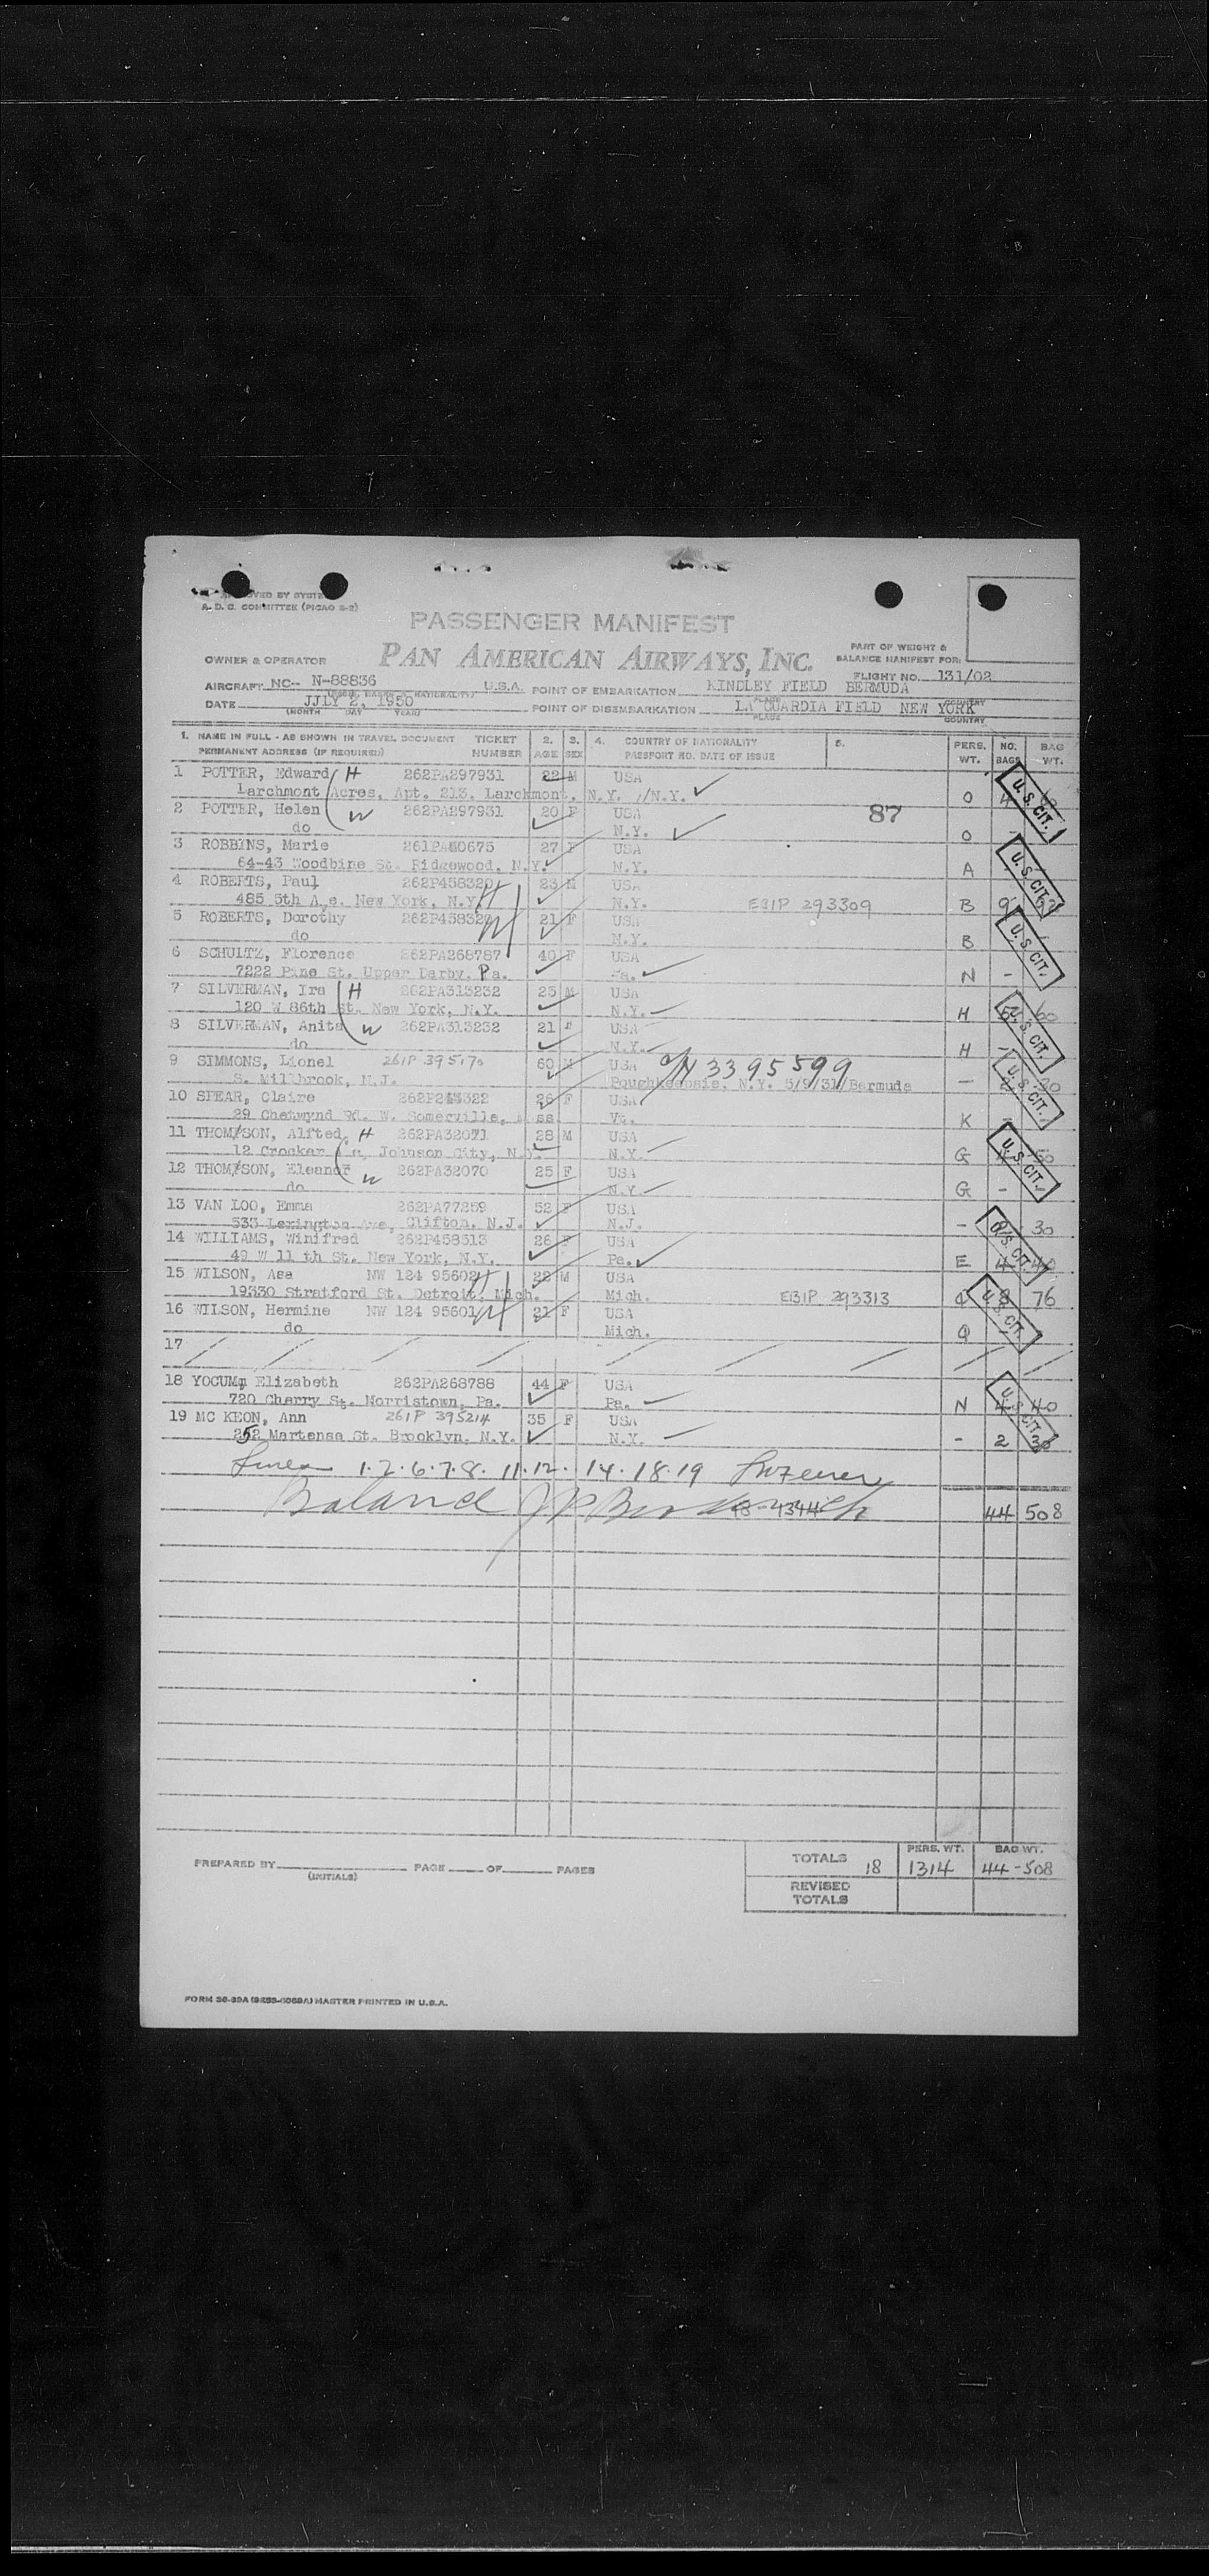 APPROVED BY SYSTE
A. D. C. COMMITTEE (PICAO S-2)
PASSENGER MANIFEST
OWNER & OPERATOR PAN AMERICAN AIRWAYS, INC.
PART OF WEIGHT &
BALANCE MANIFEST FOR:
AIRCRAFT NC-- N-88836 U.S.A. POINT OF EMBARKATION KINDLEY FIELD BERMUDA FLIGHT NO. 131/02
DATE JJLY 2, 1950 POINT OF DISEMBARKATION LA GUARDIA FIELD NEW YORK
(MONTH DAY YEAR) PLACE COUNTRY
1. NAME IN FULL - AS SHOWN IN TRAVEL DOCUMENT TICKET 2. 3. 4. COUNTRY OF NATIONALITY 5. PERS. NO. BAG
PERMANENT ADDRESS (IF REQUIRED) NUMBER AGE SEX PASSPORT NO. DATE OF ISSUE WT. BAGS WT.
1 POTTER, Edward H 262PA297931 22 M USA
Larchmont Acres, Apt. 213, Larchmont, N.Y. N.Y. O 4 U.S. CIT.
2 POTTER, Helen W 262PA297931 20 F USA 87
do N.Y. O
3 ROBBINS, Marie 27 F USA
64-43 Woodbine St. Ridgewood, N.Y. N.Y. A
4 ROBERTS, Paul 262P458320 23 M USA U.S. CIT.
485 5th Ave. New York, N.Y. H N.Y. E31P 293309 B 9
5 ROBERTS, Dorothy 21 F USA
do W N.Y. B U.S. CIT.
6 SCHULTZ, Florence 262PA268787 40 F USA
7222 Pine St. Upper Darby, Pa. Pa. N -
7 SILVERMAN, Ira H 262PA313232 25 M USA
120 W 86th St. New York, N.Y. N.Y. H 60 U.S. CIT.
8 SILVERMAN, Anita W 262PA313232 21 F USA
do N.Y. H -
9 SIMMONS, Lionel 60 M USA 3395599
S. Millbrook, N.J. Poughkeepsie, N.Y. 5/9/31/Bermuda - 30 U.S. CIT.
10 SPEAR, Claire 26 F USA
29 Chetwynd Rd. W. Somerville, Mass Vt. K
11 THOMPSON, Alfted H 262PA32071 28 M USA
12 Crocker Johnson City, N.Y. N.Y. G 50 U.S. CIT.
12 THOMPSON, Eleanor W 262PA32070 25 F USA
do N.Y. G -
13 VAN LOO, Emma 262PA77259 52 F USA
533 Lexington Ave, Clifton, N.J. N.J. - 30
14 WILLIAMS, Winifred 262P458313 26 F USA
49 W 11 th St. New York, N.Y. Pa. E 4 40 U.S. CIT.
15 WILSON, Asa NW 124 95602 H 22 M USA
19330 Stratford St. Detroit, Mich. Mich. E31P 293313 Q 8 76
16 WILSON, Hermine NW 124 95601 W 21 F USA
do Mich. Q - U.S. CIT.
17
18 YOCUM, Elizabeth 262PA268788 44 F USA
720 Cherry St. Norristown, Pa. Pa. N 4 40 U.S. CIT.
19 MC KEON, Ann 261P 395214 35 F USA
252 Martense St. Brooklyn, N.Y. N.Y. - 2 30
Lines 1.2.6.7.8. 11.12. 14.18.19
Balance 44 508
PREPARED BY PAGE OF PAGES
(INITIALS)
PERS. WT. BAG WT.
TOTALS 18 1314 44-508
REVISED
TOTALS
FORM 36-39A (9255-6069A) MASTER PRINTED IN U.S.A.